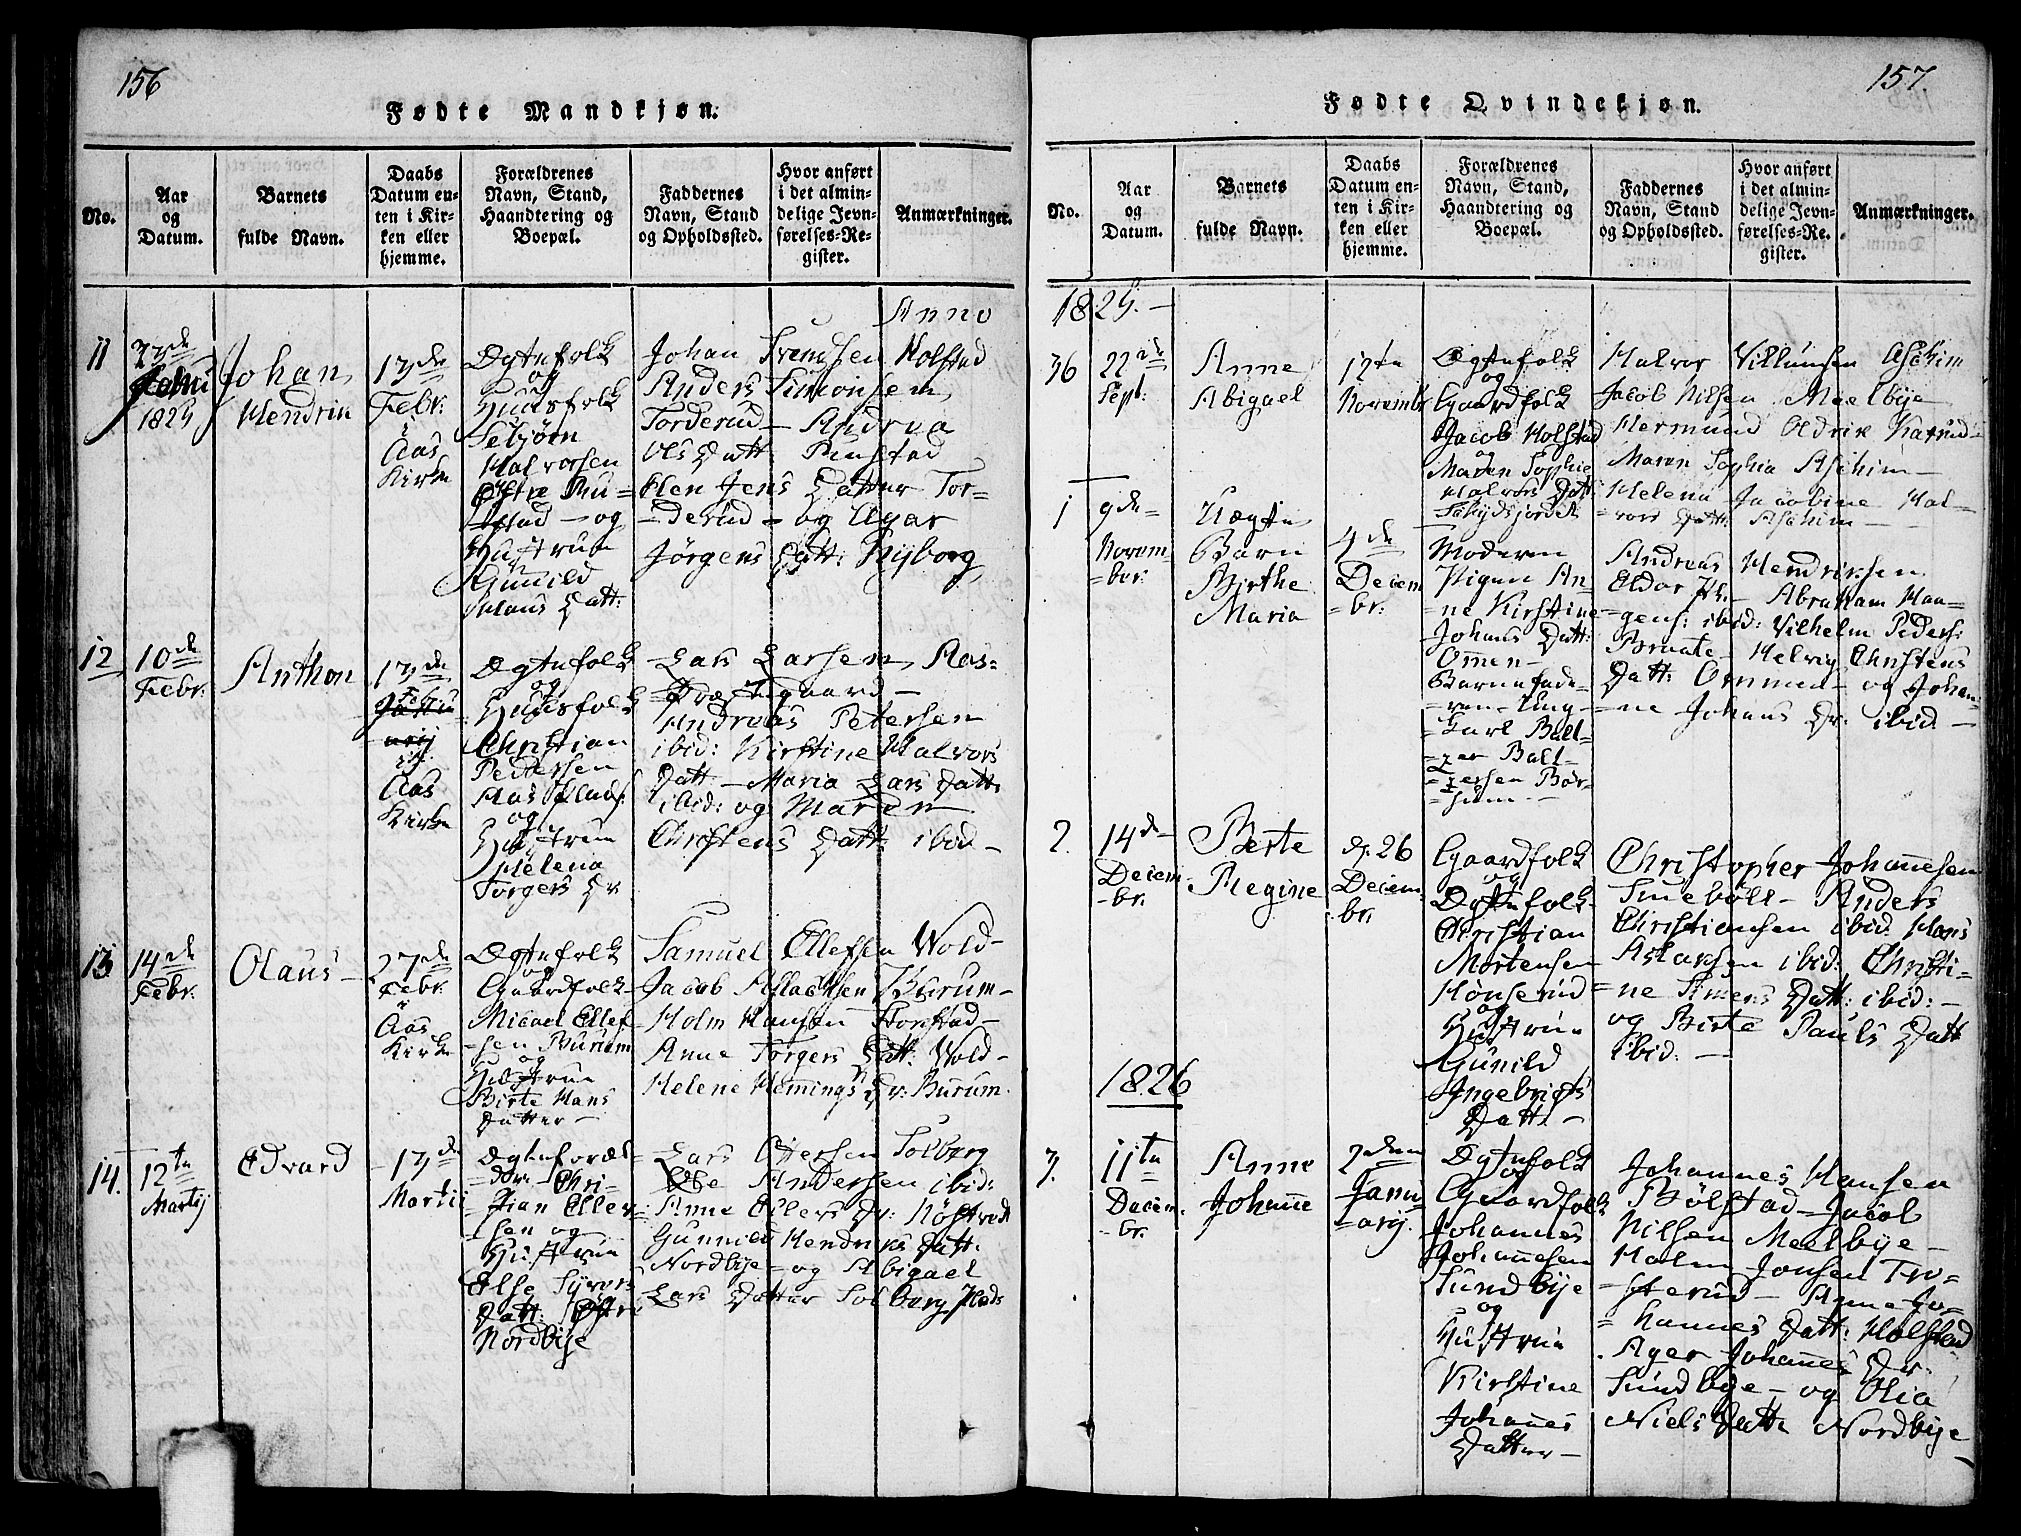 156
Fødte Mandkjøn.
No.
Aar
og
Datum.
Barnets
fulde Navn.
Daabs
Datum en-
ten i Kir-
ken eller
hjemme.
Forældrenes
Navn, Stand,
Haandtering og
Boepæl.
Faddernes
Navn, Stand
og Opholdssted.
Hvor anført
i det almin-
delige Jevn-
førelses-Re-
gister.
Anmærkninger.
Anno
11
27de
1825
Johan
Hendrik
13de
Febr:
i
Aas
Kirke
Ægtefolk
og
Huusfolk
Sebjørn
Halvorsen
Østre Ru-
stad - og
Hustrue
Gunnild
Klaus Datt:
Johan Svendsen Holstad
Anders Simonsen
Torderud - Andrea
Ols Datt. Rustad
Elen Jens Datter Tor-
derud - og Agar
Jørgens Datt: Nyborg
12
10de
Febr.
Anthon
13de
Febru
i
Aas
Kirke
Ægtefolk
og
Huusfolk
Christian
Pedersen
Aas Plads
og
Hustrue
Helena
Torgers Dr
Lars Larsen Aas-
Præstgaard -
Andreas Petersen
ibid: Kirstine Halvors
Datt - Maria Lars Datt:
ibid: og Maren
Christens Datt: ibid -
13
14de
Febr.
Olaus -
27de
Febr.
i
Aas
Kirke
Ægtefolk
og
Gaardfolk
Micael Ellef-
sen Burum
og
Hustrue
Birte Hans
Datter -
Samuel Ellefsen Wold -
Jacob Aslachsen Burum -
Holm Hansen Storstad -
Anne Torgers Datt: Wold -
Helene Hemings Dr: Burum.
14.
12te
Martij
Edvard
13de
Martii
Ægteforæl-
dre: Chri-
stian Eller-
sen og
Hustrue
Else Syvers
Datt: Østre
Nordbye
Lars Ottersen Solberg
Ole Andersen ibid:
Anne Ellers Dr: Køstved
Gunnild Hendriks Datt:
Nordbye - og Abigael
Lars Datter Solberg Plads
157.
Fødte Qvindekjøn.
No.
Aar
og
Datum.
Barnets
fulde Navn.
Daabs
Datum en-
ten i Kir-
ken eller
hjemme.
Forældrenes
Navn, Stand,
Haandtering og
Boepæl.
Faddernes
Navn, Stand
og Opholdssted.
Hvor anført
i det almin-
delige Jevn-
førelses-Re-
gister.
Anmærkninger.
1825. -
36
22de
Sept:
Anne
Abigael
12te
Novembr
Ægtefolk
og
Gaardfolk
Jacob Holstad
og
Maren Sophie
Halvors Datt:
Skydsjordet
Halvor Villumsen Aschim
Jacob Nilsen Meelbye
Hermund Oldrik Karud -
Maren Sophia Aschim -
Helena Jacobine Hal-
vors Datt: Aschim -
1
9de
Novem-
ber.
Uægte
Barn
Birthe
Maria
4de
Decem
br:
Moderen
Pigen An-
ne Kirstine
Johans Datt:
Ommen -
Barnefade-
ren - Ung-
Karl Balt-
zer Balt-
zersen Bør-
sum. -
Andreas Hendriksen
Eldor Pl. - Abraham Haa-
gens: ibid: Vilhelm Peders:
Braate - Helvig Christens
Datt: Ommen - og Johan-
ne Johans Dr: ibid. -
2.
14de
Decem-
br.
Berte
Regine
d. 26
Decem
br.
Gaardfolk
og
Ægtefolk
Christian
Mortensen
Hønserud
og
Hustrue
Gunild
Ingebrigts
Datt: -
Christopher Johannesen
Smebøll - Anders
Christiansen ibid. Hans
Aslaksen ibid: Christi-
ne Simens Datt: ibid: -
og Birte Pauls Datt
ibid: -
1826
3.
11te
Decem-
br.
Anne
Johanne
2den
Janu-
arij.
Ægtefolk
og
Gaardfolk
Johannes
Johannesen
Sundbye
og
Hustrue
Kirstine
Johannes
Datter -
Johannes Hansen
Bølstad - Jacob
Nilsen Meelbye -
Holm Jonsen Tro-
sterud - Anne Jo-
hannes Datt: Holstad
Ager Johannes Dr.
Sundbye - og Olia
Niels Datt: Nordbye